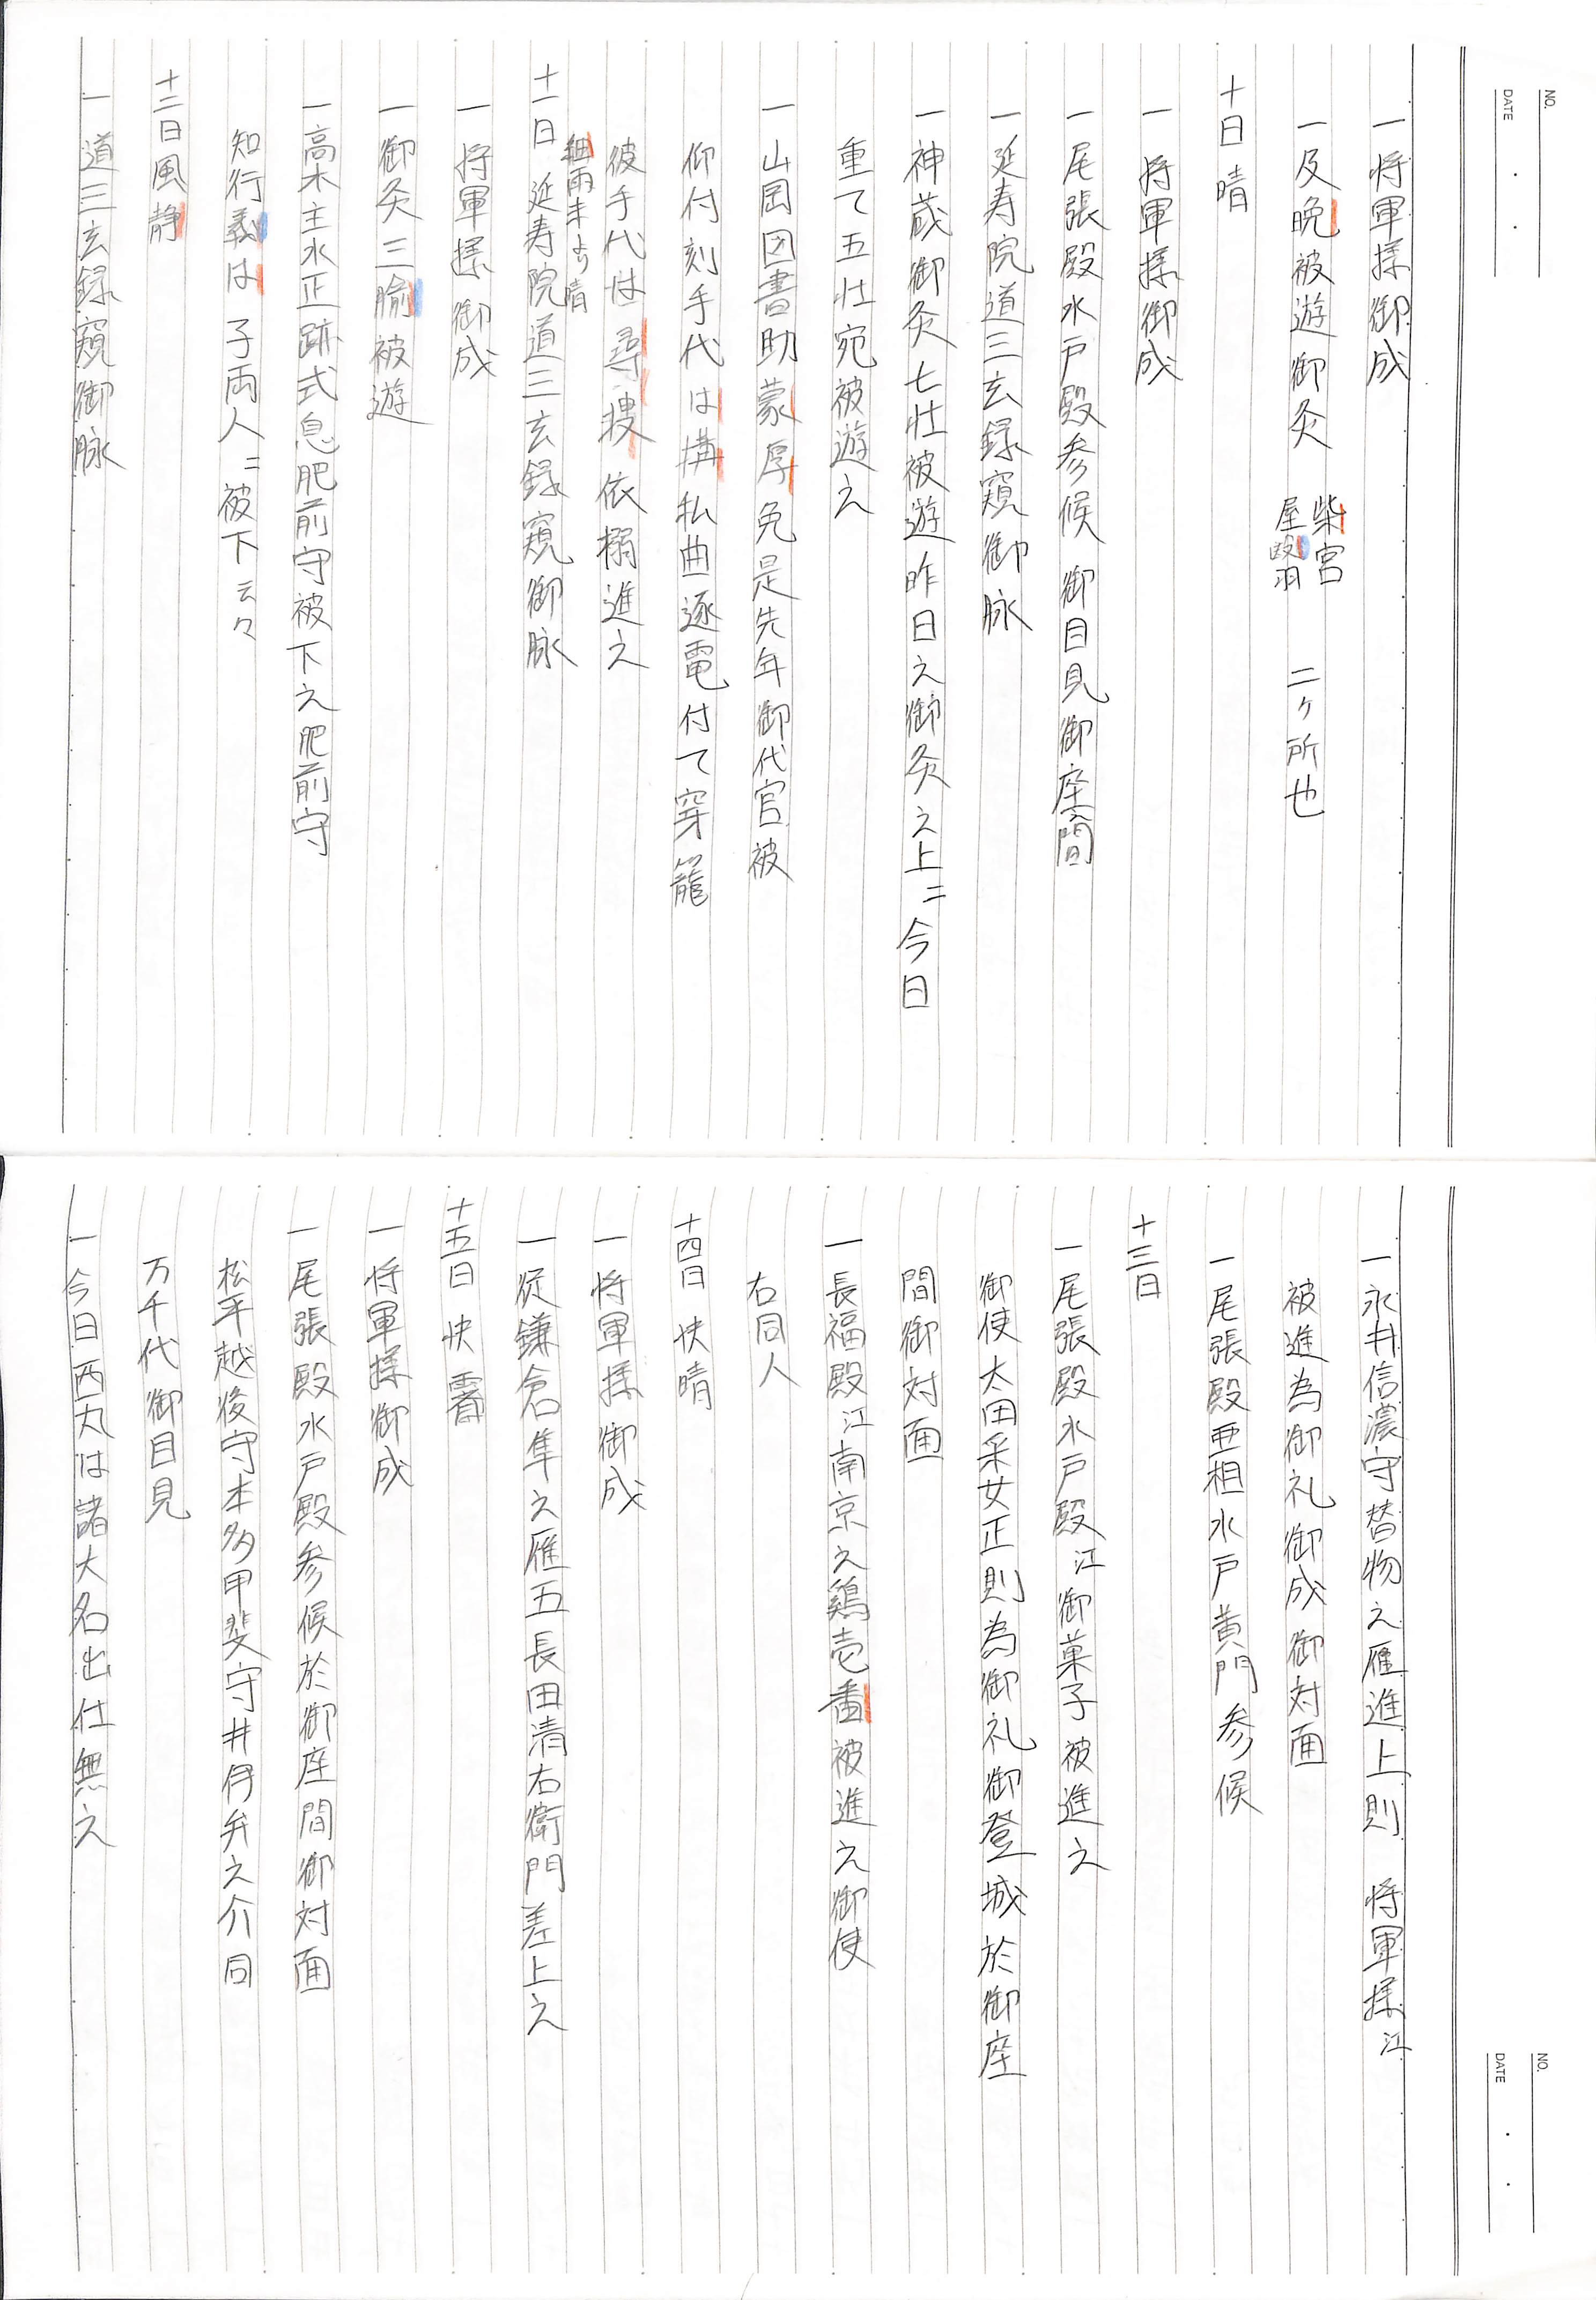 NO.
DATE
一 将軍様御成
一及晩被遊御灸 柴宮 屋翳 二ヶ所也
十日 晴
一 将軍様御成
一尾張殿水戸殿参候 御目見御座之間
一延寿院道三玄録窺御脉
一神蔵御灸七壮被遊昨日之御灸之上ニ今日
重て五壮宛被遊之
一山岡図書助蒙厚免是先年御代官被
仰付刻手代は搆私曲逐電付て穿籠
彼手代は尋捜依搦進之
十一日 細雨未より晴 延寿院道三玄録窺御脉
一 将軍様御成
一御灸三腧被遊
一高木主水正跡式息肥前守被下之肥前守
知行義は子両人ニ被下云々
十二日風静
一 道三玄録窺御脉
NO.
DATE
一永井信濃守替物之雁進上則 将軍様江
被進為御礼御成御対面
一尾張殿亜相水戸黄門参候
十三日
一尾張殿水戸殿江御菓子被進之
御使太田采女正則為御礼御登城於御座
間御対面
一長福殿江南京之鶏壱番被進之御使
右同人
十四日 快晴
一将軍様御成
一従鎌倉隼之雁五長田清右衛門差上之
十五日 快霽
一将軍様御成
一尾張殿水戸殿参候於御座間御対面
松平越後守本多甲斐守井伊弁之介同
万千代御目見
一今日西丸は諸大名出仕無之